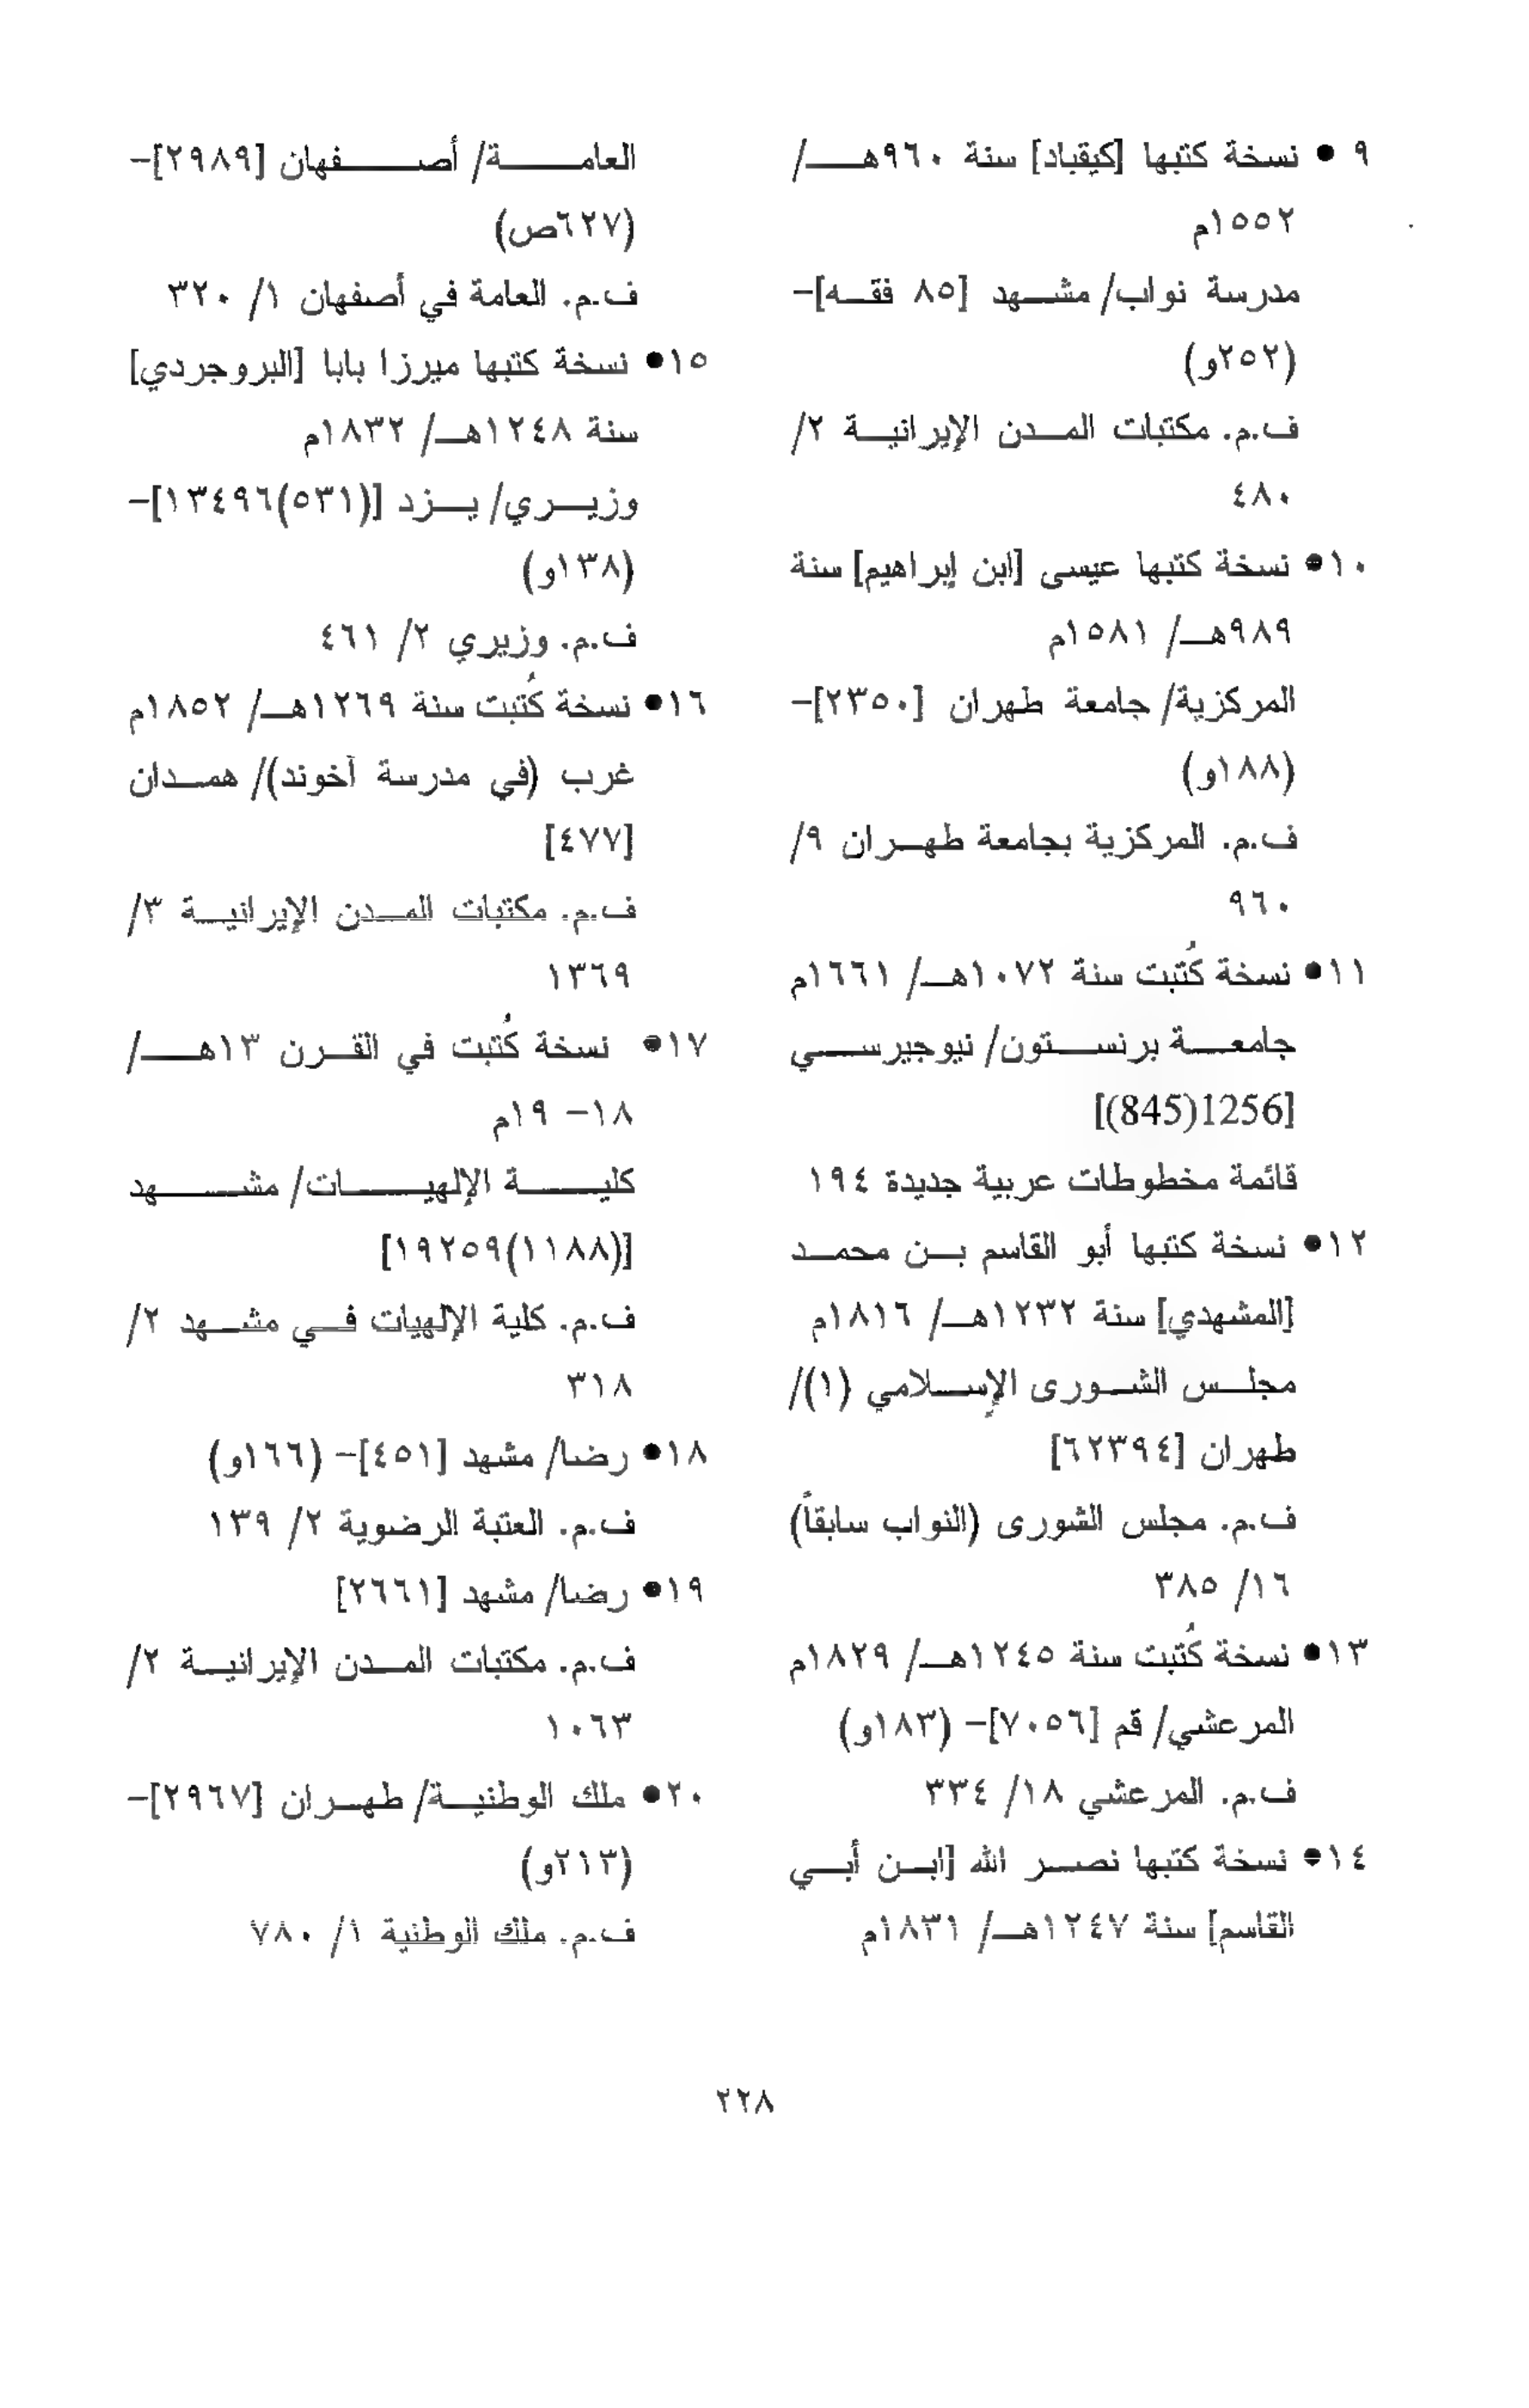 ٩ • نسخة كتبها [كيقباد] سنة ٩٦٠هـ/
١٥٥٢م
مدرسة نواب/ مشهد [٨٥ فقه]-
(٢٥٢و)
ف.م. مكتبات المدن الإيرانية ٢/
٤٨٠
١٠• نسخة كتبها عيسى [ابن إبراهيم] سنة
٩٨٩هـ/ ١٥٨١م
المركزية/ جامعة طهران [٢٣٥٠]-
(١٨٨و)
ف.م. المركزية بجامعة طهران ٩/
٩٦٠
١١• نسخة كُتبت سنة ١٠٧٢هـ/ ١٦٦١م
جامعة برنستون/ نيوجيرسي
[(845)1256]
قائمة مخطوطات عربية جديدة ١٩٤
١٢• نسخة كتبها أبو القاسم بن محمد
[المشهدي] سنة ١٢٣٢هـ/ ١٨١٦م
مجلس الشورى الإسلامي (١)/
طهران [٦٢٣٩٤]
ف.م. مجلس الشورى (النواب سابقاً)
١٦/ ٣٨٥
١٣• نسخة كُتبت سنة ١٢٤٥هـ/ ١٨٢٩م
المرعشي/ قم [٧٠٥٦]- (١٨٣و)
ف.م. المرعشي ١٨/ ٣٣٤
١٤• نسخة كتبها نصر الله [ابن أبي
القاسم] سنة ١٢٤٧هـ/ ١٨٣١م
العامة/ أصفهان [٢٩٨٩]-
(٦٢٧ص)
ف.م. العامة في أصفهان ١/ ٣٢٠
١٥• نسخة كتبها ميرزا بابا [البروجردي]
سنة ١٢٤٨هـ/ ١٨٣٢م
وزيري/ يزد [(٥٣١)١٣٤٩٦]-
(١٣٨و)
ف.م. وزيري ٢/ ٤٦١
١٦• نسخة كُتبت سنة ١٢٦٩هـ/ ١٨٥٢م
غرب (في مدرسة آخوند)/ همدان
[٤٧٧]
ف.م. مكتبات المدن الإيرانية ٣/
١٣٦٩
١٧• نسخة كُتبت في القرن ١٣هـ/
١٨- ١٩م
كلية الإلهيات/ مشهد
[(١١٨٨)١٩٢٥٩]
ف.م. كلية الإلهيات في مشهد ٢/
٣١٨
١٨• رضا/ مشهد [٤٥١]- (١٦٦و)
ف.م. العتبة الرضوية ٢/ ١٣٩
١٩• رضا/ مشهد [٢٦٦١]
ف.م. مكتبات المدن الإيرانية ٢/
١٠٦٣
٢٠• ملك الوطنية/ طهران [٢٩٦٧]-
(٢١٣و)
ف.م. ملك الوطنية ١/ ٧٨٠
٢٢٨